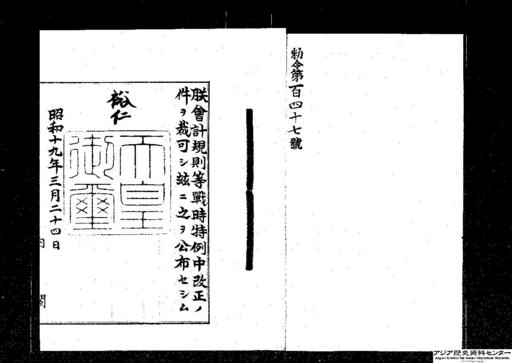 勅令第百四十七號
朕會計規則等戰時特例中改正ノ
件ヲ裁可シ玆ニ之ヲ公布セシム
裕仁
天皇
御璽
昭和十九年三月二十四日
内閣
アジア歴史資料センター
Japan Center for Asian Historical Records